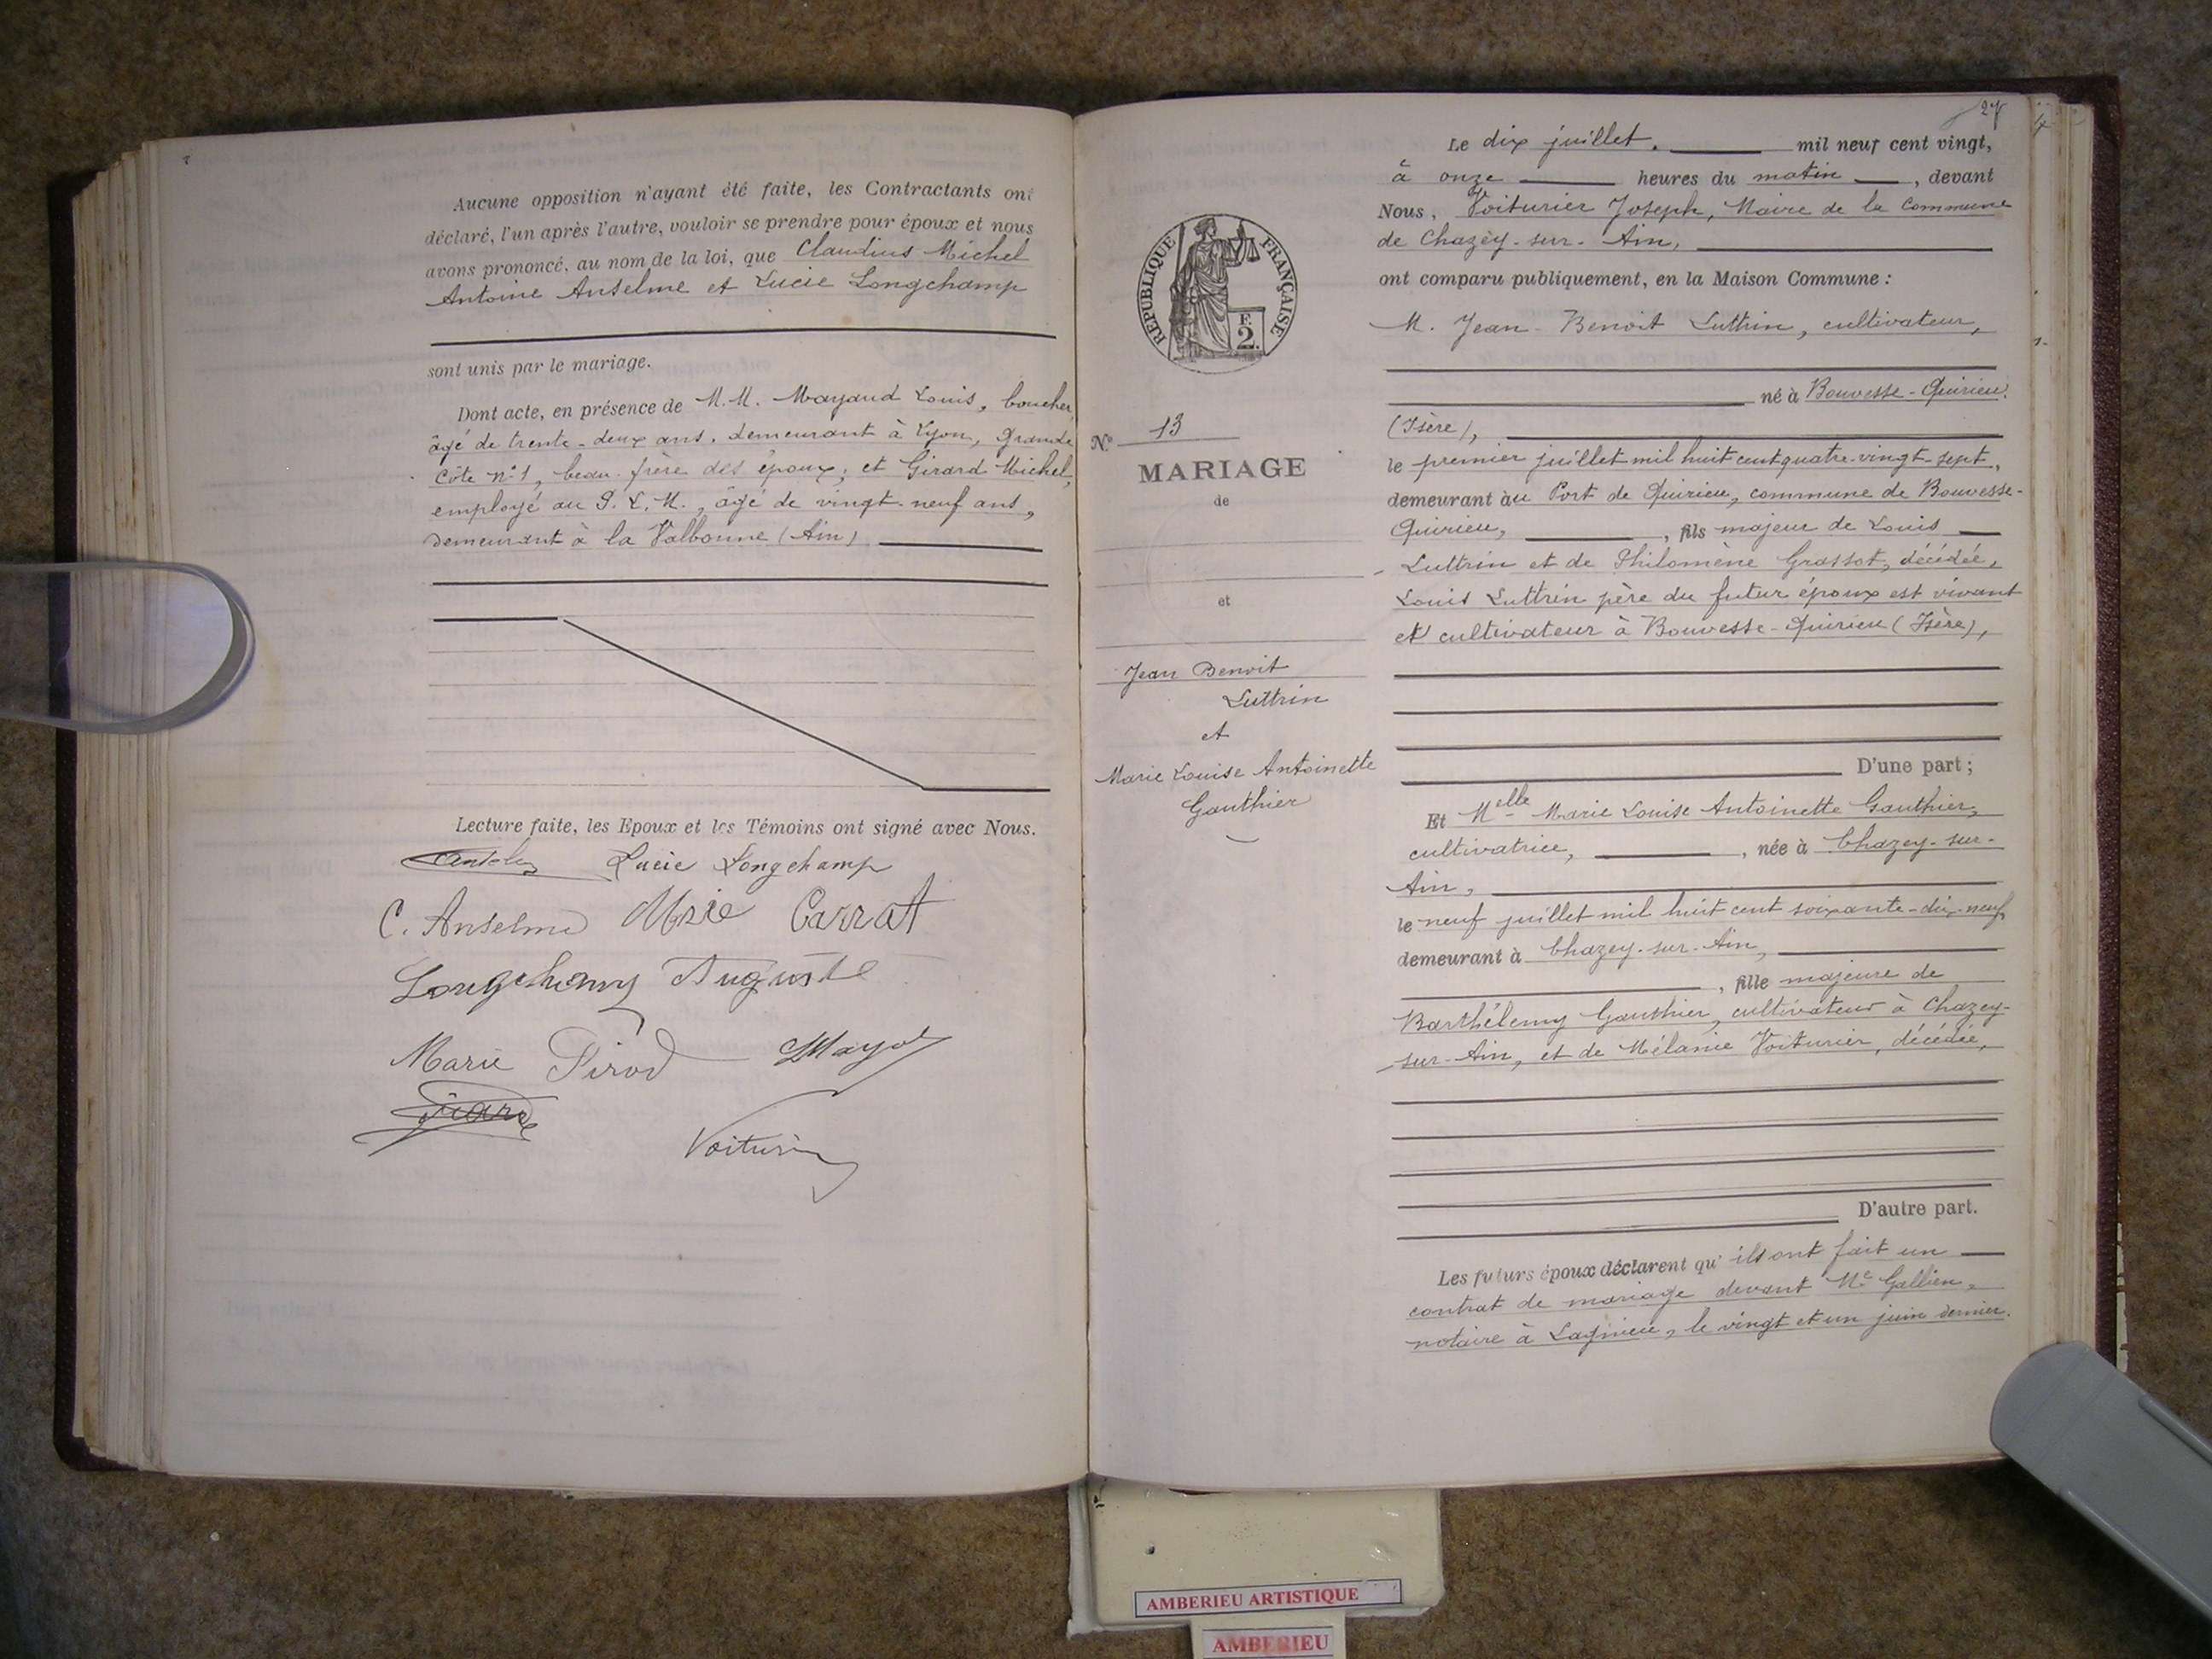 Aucune opposition n'ayant été faite, les Contractants ont
déclaré, l'un après l'autre, vouloir se prendre pour époux et nous
avons prononcé, au nom de la loi, que Claudius Michel
Antoine Anselme et Lucie Longchamp
sont unis par le mariage.
Dont acte, en présence de M.M. Mayaud Louis, boucher,
âgé de trente-deux ans, demeurant à Lyon, Grande
Côte n° 1, beau-frère des époux; et Girard Michel,
employé au P.L.M., âgé de vingt-neuf ans,
demeurant à la Valbonne (Ain)
Lecture faite, les Epoux et les Témoins ont signé avec Nous.
Lucie Longchamp
C. Anselme Marie Carrat
Longchamp Auguste
Marie Pirod
Voiturier
27
REPUBLIQUE FRANÇAISE
F.
2.
N° 13
MARIAGE
de
et
Jean Benoit
Luttrin
et
Marie Louise Antoinette
Gauthier
Le dix juillet. mil neuf cent vingt,
à onze heures du matin, devant
Nous, Voiturier Joseph, Maire de la Commune
de Chazey-sur-Ain,
ont comparu publiquement, en la Maison Commune :
M. Jean-Benoit Luttrin, cultivateur,
né à Bouvesse-Quirieu.
(Isère),
le premier juillet mil huit cent quatre-vingt-sept,
demeurant au Port de Quirieu, commune de Bouvesse-
Quirieu, , fils majeur de Louis
Luttrin et de Philomène Grassot, décédée,
Louis Luttrin père du futur époux est vivant
et cultivateur à Bouvesse-Quirieu (Isère),
D'une part ;
Et Melle Marie Louise Antoinette Gauthier,
cultivatrice, , née à Chazey-sur-
Ain,
le neuf juillet mil huit cent soixante-dix-neuf,
demeurant à Chazey-sur-Ain,
, fille majeure de
Barthélemy Gauthier, cultivateur à Chazey-
sur-Ain, et de Mélanie Voiturier, décédée,
D'autre part.
Les futurs époux déclarent qu'ils ont fait un
contrat de mariage devant Me Gallien,
notaire à Lagnieu, le vingt et un juin dernier.
AMBERIEU ARTISTIQUE
AMBERIEU